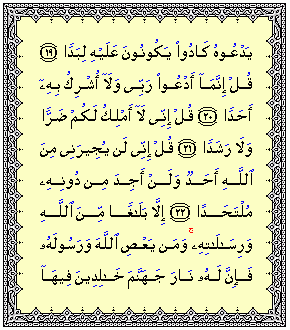 يَدْعُوهُ كَادُواْ يَكُونُونَ عَلَيْهِ لِبَدًا ﴿١٩﴾
قُلْ إِنَّمَآ أَدْعُواْ رَبِّى وَلَآ أُشْرِكُ بِهِۦٓ
أَحَدًا ﴿٢٠﴾ قُلْ إِنِّى لَآ أَمْلِكُ لَكُمْ ضَرًّا
وَلَا رَشَدًا ﴿٢١﴾ قُلْ إِنِّى لَن يُجِيرَنِى مِنَ
ٱللَّهِ أَحَدٌ وَلَنْ أَجِدَ مِن دُونِهِۦ
مُلْتَحَدًا ﴿٢٢﴾ إِلَّا بَلَٰغًا مِّنَ ٱللَّهِ
وَرِسَٰلَٰتِهِۦ ۚ وَمَن يَعْصِ ٱللَّهَ وَرَسُولَهُۥ
فَإِنَّ لَهُۥ نَارَ جَهَنَّمَ خَٰلِدِينَ فِيهَآ